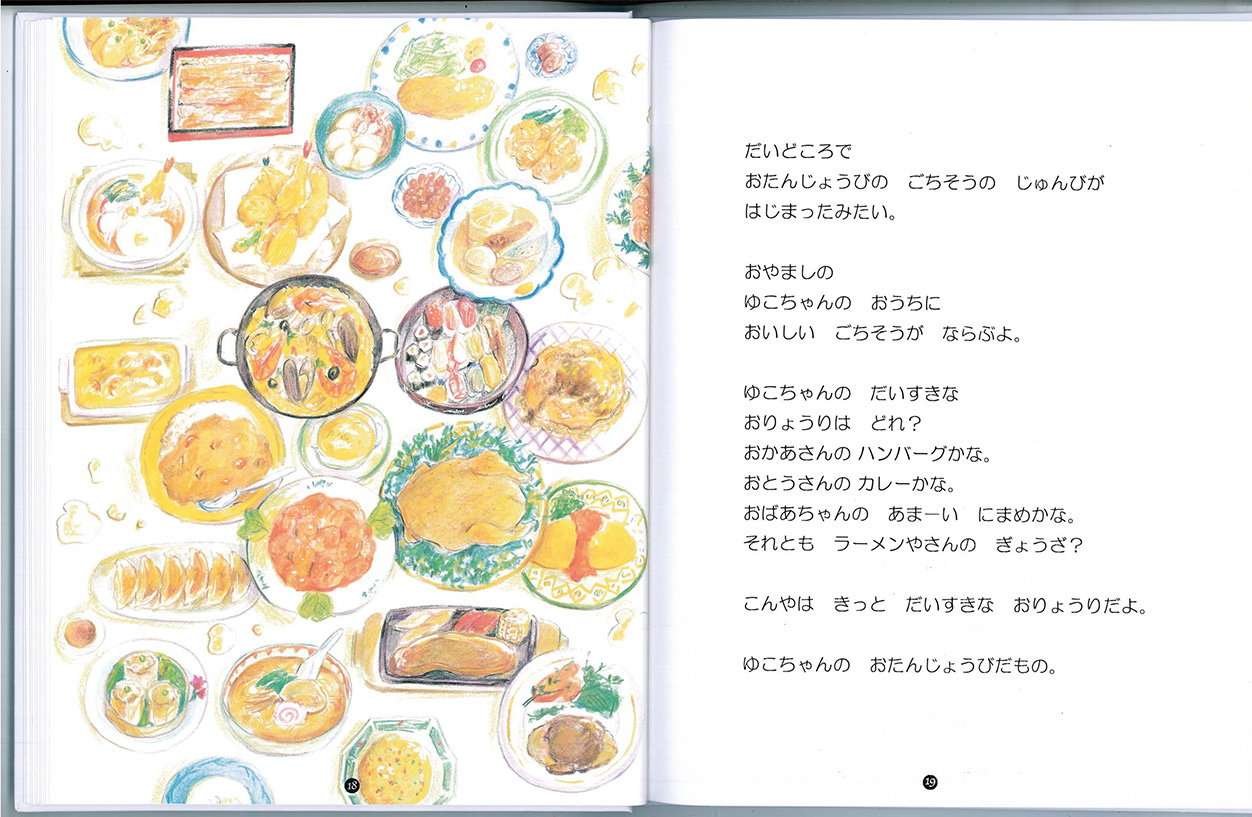 だいどころで
おたんじょうびの　ごちそうの　じゅんびが
はじまったみたい。
おやましの
ゆこちゃんの　おうちに
おいしい　ごちそうが　ならぶよ。
ゆこちゃんの　だいすきな
おりょうりは　どれ？
おかあさんの ハンバーグかな。
おとうさんの カレーかな。
おばあちゃんの　あまーい　にまめかな。
それとも　ラーメンやさんの　ぎょうざ？
こんやは　きっと　だいすきな　おりょうりだよ。
ゆこちゃんの　おたんじょうびだもの。
18
19